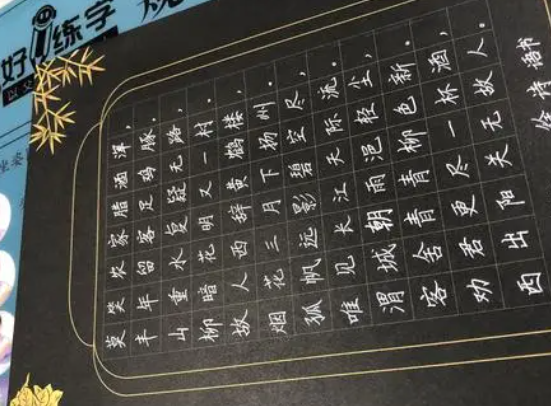 好练字
坐姿
莫笑农家腊酒浑，
丰年留客足鸡豚。
山重水复疑无路，
柳暗花明又一村。
故人西辞黄鹤楼，
烟花三月下扬州。
孤帆远影碧空尽，
唯见长江天际流。
渭城朝雨浥轻尘，
客舍青青柳色新。
劝君更尽一杯酒，
西出阳关无故人。